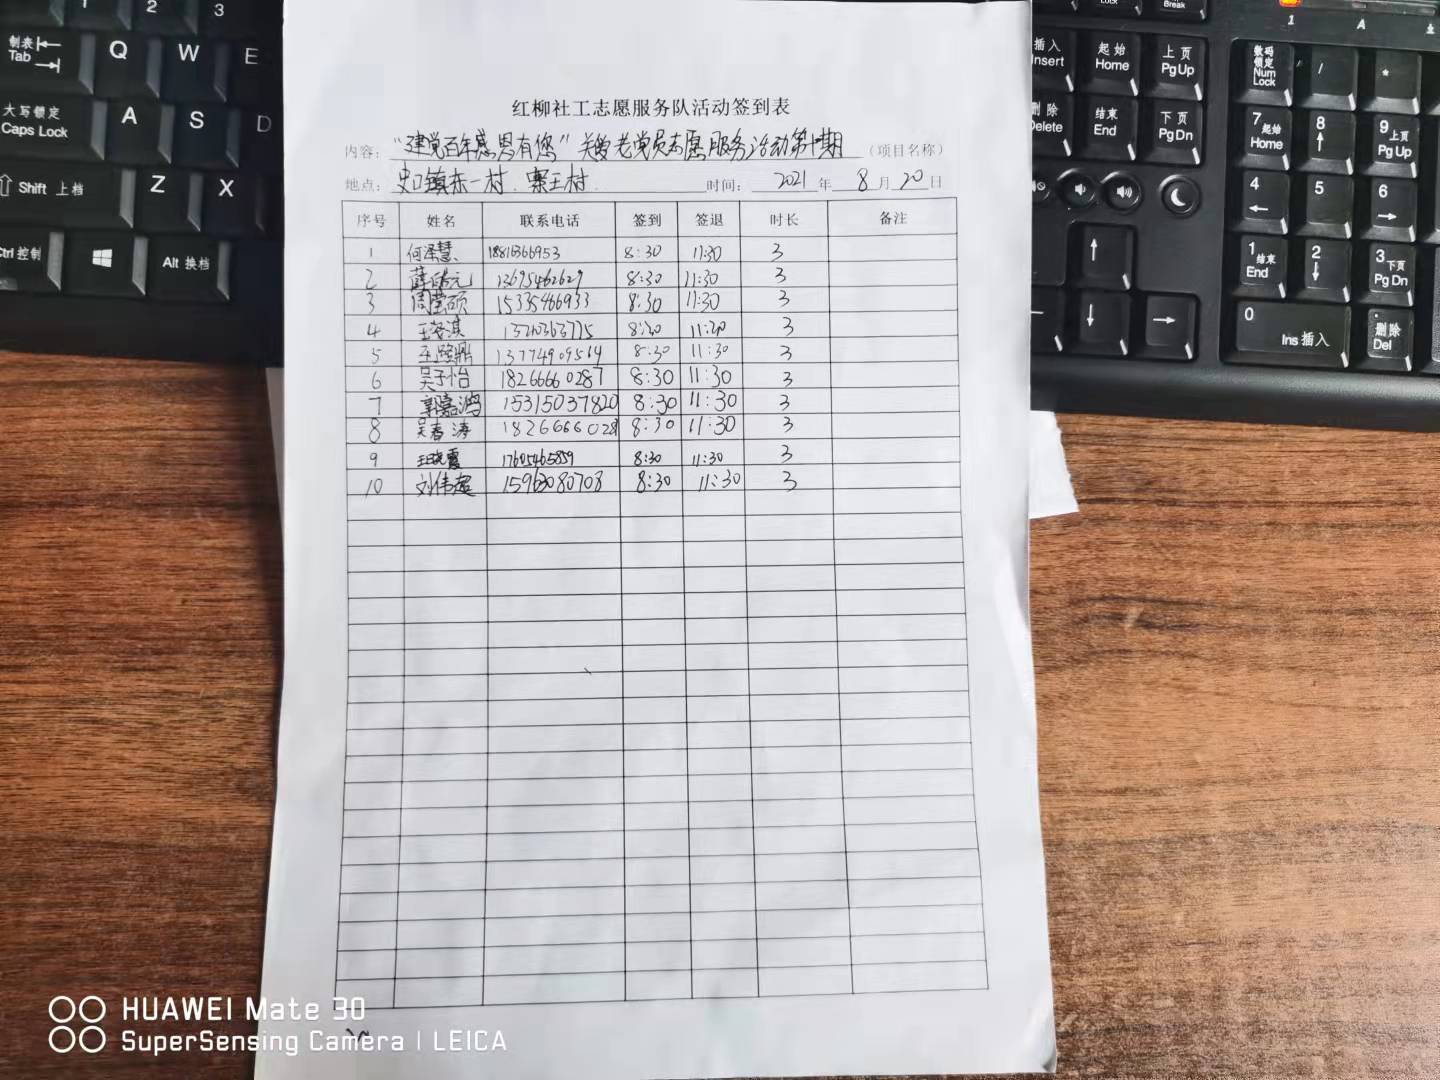 1 2 3
制表 Tab Q W E
大写锁定 Caps Lock A S D
Shift 上档 Z X
Ctrl 控制 Alt 换档
插入 Insert 起始 Home 上页 PgUp
删除 Delete 结束 End 下页 PgDn
Lock Break
1 A
数码锁定 Num Lock / *
7 起始 Home 8 9 上页 PgUp
4 5 6
1 结束 End 2 3 下页 PgDn
0 Ins 插入 . 删除 Del
红柳社工志愿服务队活动签到表
内容: “建党百年感恩有您”关爱老党员志愿服务活动第十期 (项目名称)
地点: 史口镇东一村、寨王村. 时间: 2021 年 8 月 20 日
序号 姓名 联系电话 签到 签退 时长 备注
1 何泽慧 8:30 11:30 3
2 13695462629 8:30 11:30 3
3 周莹硕 15335466933 8:30 11:30 3
4 8:30 11:30 3
5 13774909564 8:30 11:30 3
6 吴子怡 18266660287 8:30 11:30 3
7 郭嘉鸿 15315037820 8:30 11:30 3
8 吴春涛 1826666028 8:30 11:30 3
9 王晓霞 17605465859 8:30 11:30 3
10 刘伟超 15963080708 8:30 11:30 3
HUAWEI Mate 30
SuperSensing Camera | LEICA